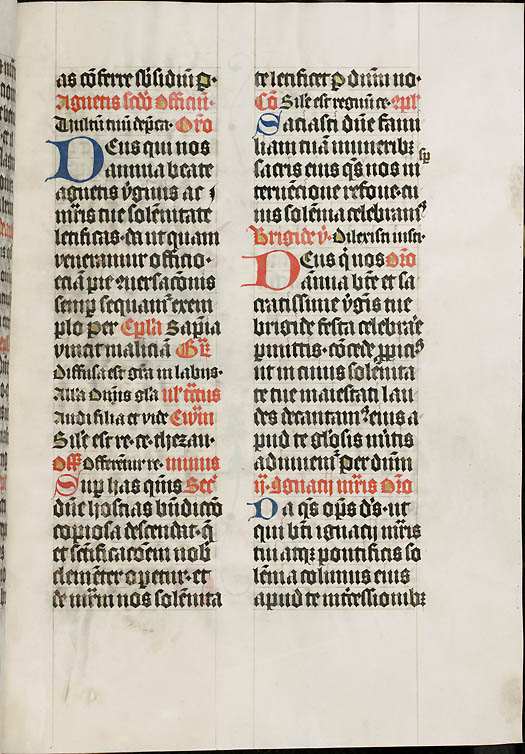 as cōferre sb̄sidiū p·
Agnetis scdō Officiū·
Vultū tuū dep̄ca· Or̄o
Deus qui nos
annua beate
agnetis v̄ginis ac
mr̄is tue solēnitate
letificas· da ut quam
veneramur officio·
etiā pie ꝯversac̄onis
semp sequam̄ exem
plo Per Ep̄la Sapīa
vincit maliciā Gr̄
Diffusa est gr̄a in labiis·
Alla Om̄is gl̄a vl' tc̄tus
Audi filia et vide Ewm̄
Sil'e est re· ce· thezau·
Off Offerēnt̄ re· minus
Sup has q̄m̄s Sec̄
dn̄e hostias bn̄dictō
copiosa descendat· q̄
et sc̄tificac̄oem nob̄
clemēter opetur· et
de mr̄m nos solēnita
te letificet p dnm̄ no·
Cō Sil'e est regnū ce· 9pl̄
Saciasti dn̄e fami
liam tuā muneribꝫ
sacris eius q̄s nos in
tervēcione refove· cu
ius solēnia celebramꝰ
Brigide v̄· Dilexisti iusti·
Deus q̇ nos Or̄o
annua bt̄e et sa
cratissime v̄gīs tue
brigide festa celebrar̄e
p̱mittis· cōcede ꝓpiciꝰ
ut in cuius solēnita
te tue maiestati lau
des decantamꝰ eius a
pud te gl̄osis mīt̄is
adiuvem̄ Per dnm̄
Ignacij mr̄is Or̄o
Da q̄s op̄s ds̄· ut
qui bt̄i ignacij mr̄is
tui atqꝫ pontificis so
lēnia colimus eius
apud te int̄cessionibꝫ